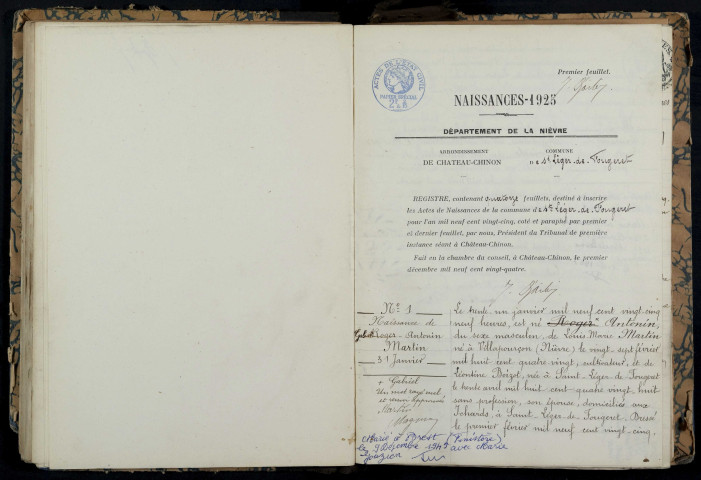 Premier feuillet.
ACTES DE L'ETAT CIVIL
PAPIER SPECIAL
NAISSANCES-1925
DÉPARTEMENT DE LA NIÈVRE
ARRONDISSEMENT
DE CHATEAU-CHINON
COMMUNE
DE St Léger-de-Fougeret
REGISTRE, contenant quatorze feuillets, destiné à inscrire
les Actes de Naissances de la commune de St Léger-de-Fougeret
pour l'an mil neuf cent vingt-cinq, coté et paraphé par premier
et dernier feuillet, par nous, Président du Tribunal de première
instance séant à Château-Chinon.
Fait en la chambre du conseil, à Château-Chinon, le premier
décembre mil neuf cent vingt-quatre.
No 1
Naissance de
Roger-Antonin
Martin
31 Janvier
+ Gabriel
Un mot rayé nul
et renvoi approuvé
Martin
Le trente un janvier mil neuf cent vingt-cinq
neuf heures, est né Roger Antonin,
du sexe masculin, de Louis Marie Martin
né à Villapourçon (Nièvre) le vingt-sept février
mil huit cent quatre vingt, cultivateur, et de
Léontine Boizot, née à Saint-Léger-de-Fougeret
le trente avril mil huit cent quatre vingt-huit
sans profession, son épouse, domiciliés aux
à Saint-Léger-de-Fougeret. Dressé
le premier février mil neuf cent vingt-cinq,
Marié à Brest (Finistère)
le 9 Décembre 1949 avec Marie